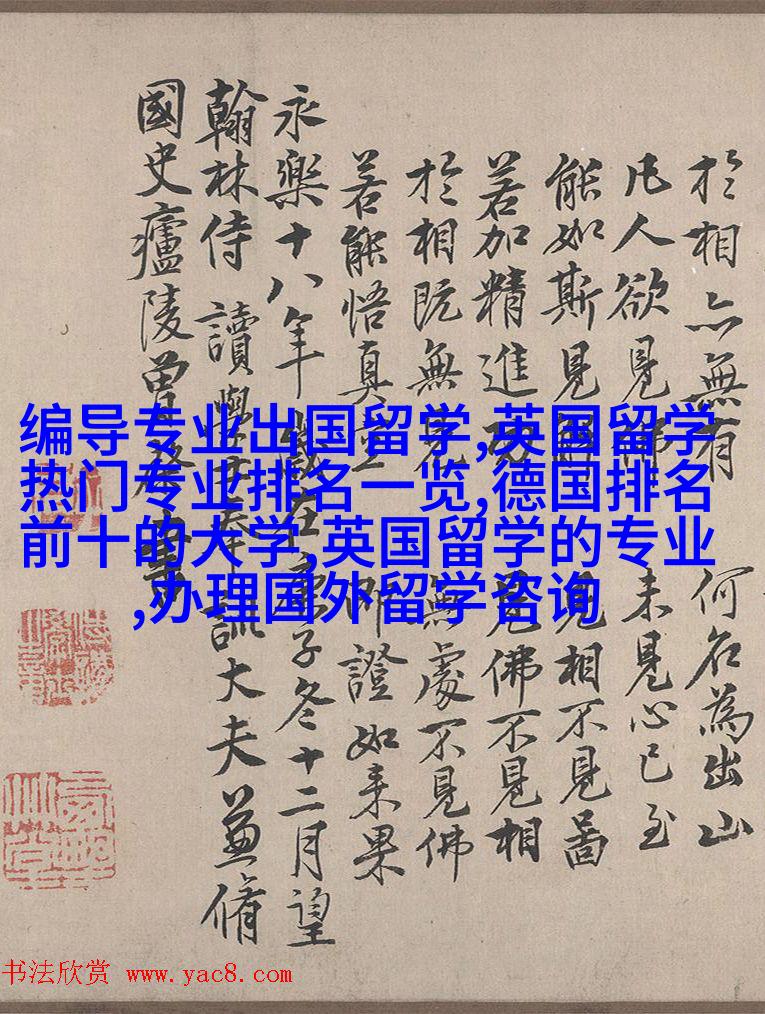 於相亦無有 何名為出山
凡人欲見佛 未見心已至
能如斯見 見相不見啚
若加精進力 見佛不見相
於相既無見 無處不見佛
若能悟真空 即證如来果
永樂十八年歲在庚子冬十二月望
翰林侍讀學士奉訓大夫兼脩
國史廬陵曾棨書
编导专业出国留学,英国留学
热门专业排名一览,德国排名
前十的大学,英国留学的专业
,办理国外留学咨询
书法欣赏 www.yac8.com